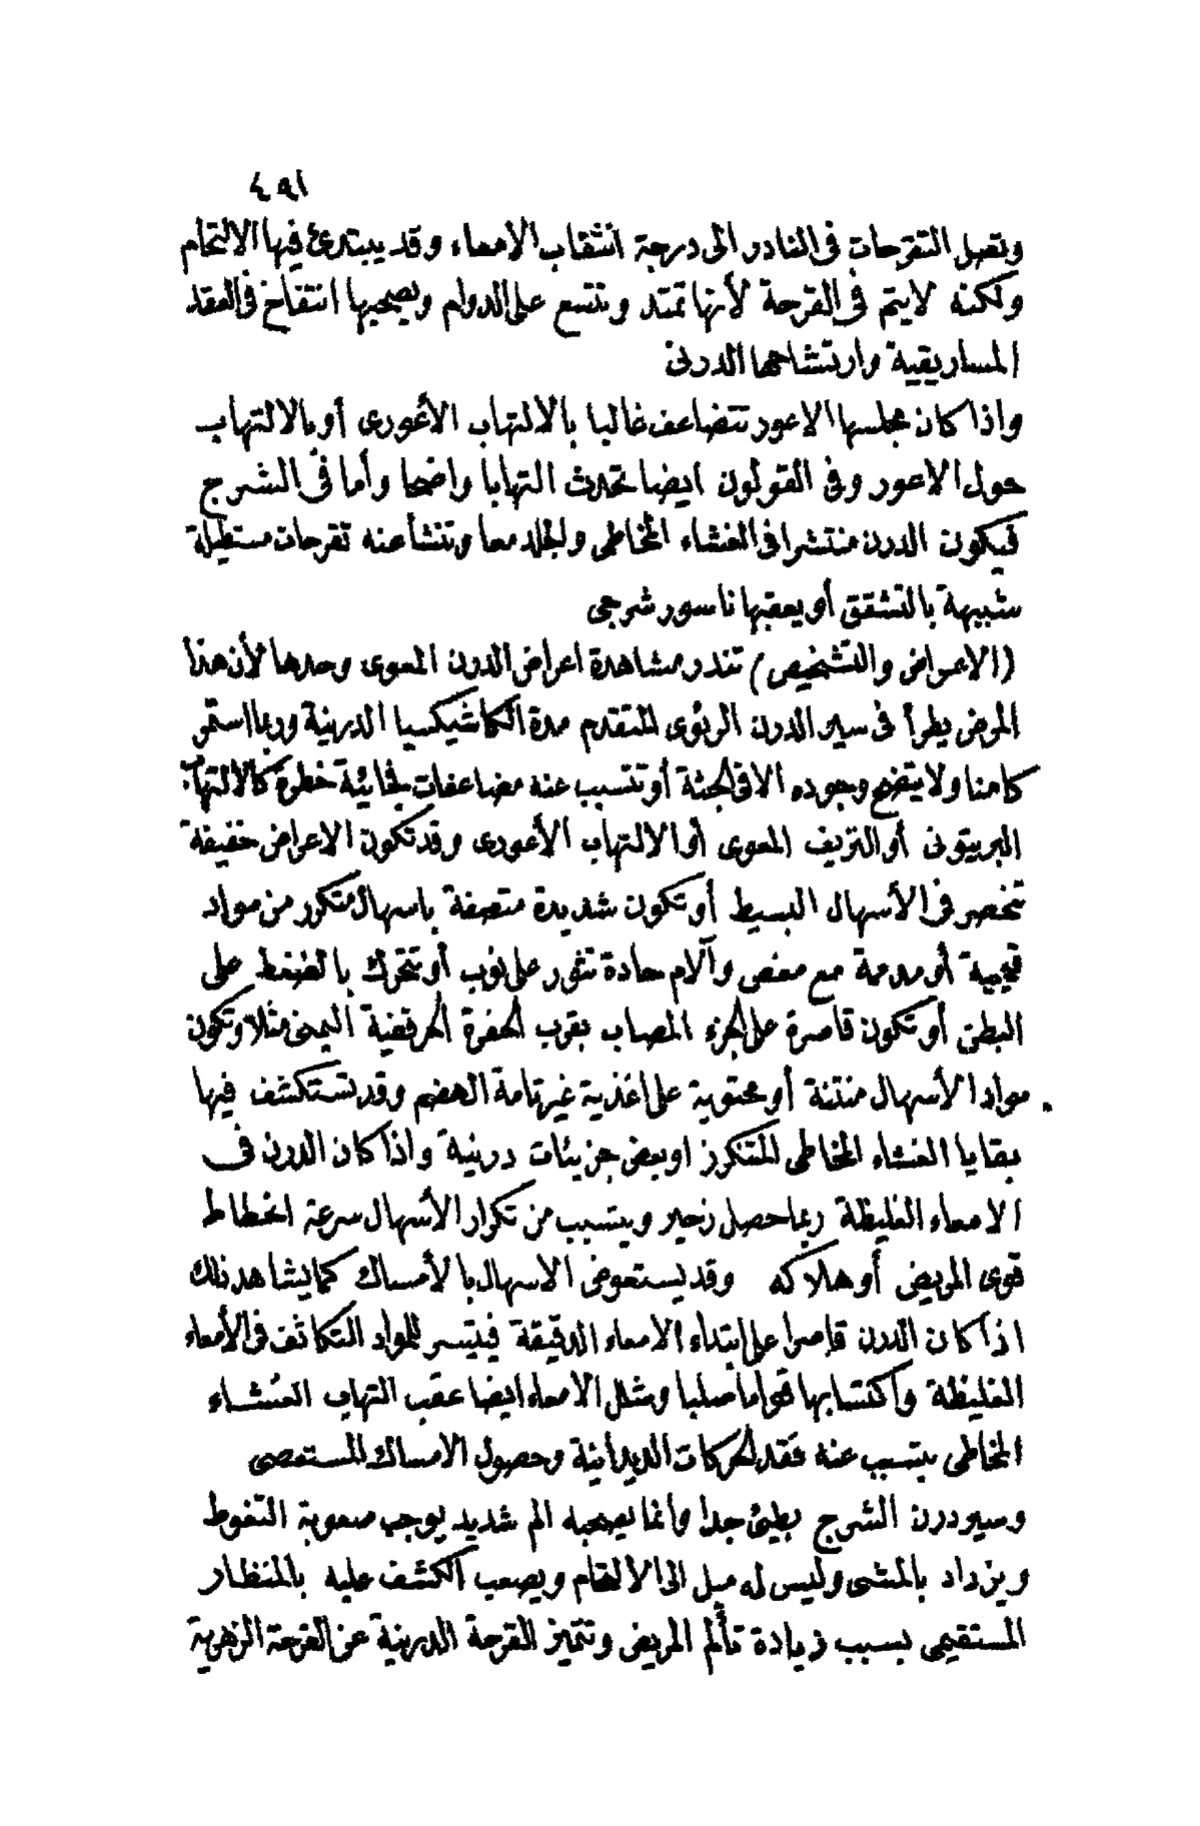 ٤٩١
وتصل التقرحات فى النادر الى درجة انثقاب الامعاء وقد يبتدئ فيها الالتحام
ولكنه لايتم فى القرحة لأنها تمتد وتتسع على الدوام ويصحبها انتفاخ فى العقد
المساريقية وارتشاحها الدرنى
واذا كان مجلسها الاعور تتضاعف غالبا بالالتهاب الأعورى أو بالالتهاب
حول الاعور وفى القولون ايضا تحدث التهابا واضحا وأما فى الشرج
فيكون الدرن منتشرا فى الغشاء المخاطى والجلد معا وتنشأ عنه تقرحات مستطيلة
شبيهة بالتشقق أو يعقبها ناسور شرجى
(الاعراض والتشخيص) تندر مشاهدة اعراض الدرن المعوى وحدها لأن هذا
المرض يطرأ فى سير الدرن الرئوى المتقدم مدة الكاشيكسيا الدرنية وربما استمر
كامنا ولا يتضح وجوده الا فى الجثة أو تتسبب عنه مضاعفات فجائية خطرة كالالتهاب
البريتونى أو النزيف المعوى أو الالتهاب الأعورى وقد تكون الاعراض خفيفة
تنحصر فى الأسهال البسيط أو تكون شديدة متصفة باسهال متكرر من مواد
قيحية أو مدممة مع مغص وآلام حادة تثور على نوب أو تتحرك بالضغط على
البطن أو تكون قاصرة على الجزء المصاب بقرب الحفرة الحرقفية اليمنى مثلا وتكون
مواد الأسهال منتنة أو محتوية على اغذية غير تامة الهضم وقد تستكشف فيها
بقايا الغشاء المخاطى المتنكرز او بعض جزيئات درنية واذا كان الدرن فى
الامعاء الغليظة ربما حصل زحير ويتسبب من تكرار الأسهال سرعة انحطاط
قوى المريض أو هلاكه وقد يستعوض الاسهال بالأمساك كما يشاهد ذلك
اذا كان الدرن قاصرا على ابتداء الامعاء الدقيقة فيتيسر للمواد التكاثف فى الأمعاء
الغليظة واكتسابها قواما صلبا وشلل الامعاء ايضا عقب التهاب الغشاء
المخاطى يتسبب عنه فقد الحركات الديدانية وحصول الامساك المستعصى
وسير درن الشرج بطيئ جدا وانما يصحبه الم شديد يوجب صعوبة التغوط
ويزداد بالمشى وليس له ميل الى الالتحام ويصعب الكشف عليه بالمنظار
المستقيمى بسبب زيادة تألم المريض وتتميز القرحة الدرنية عن القرحة الزهرية